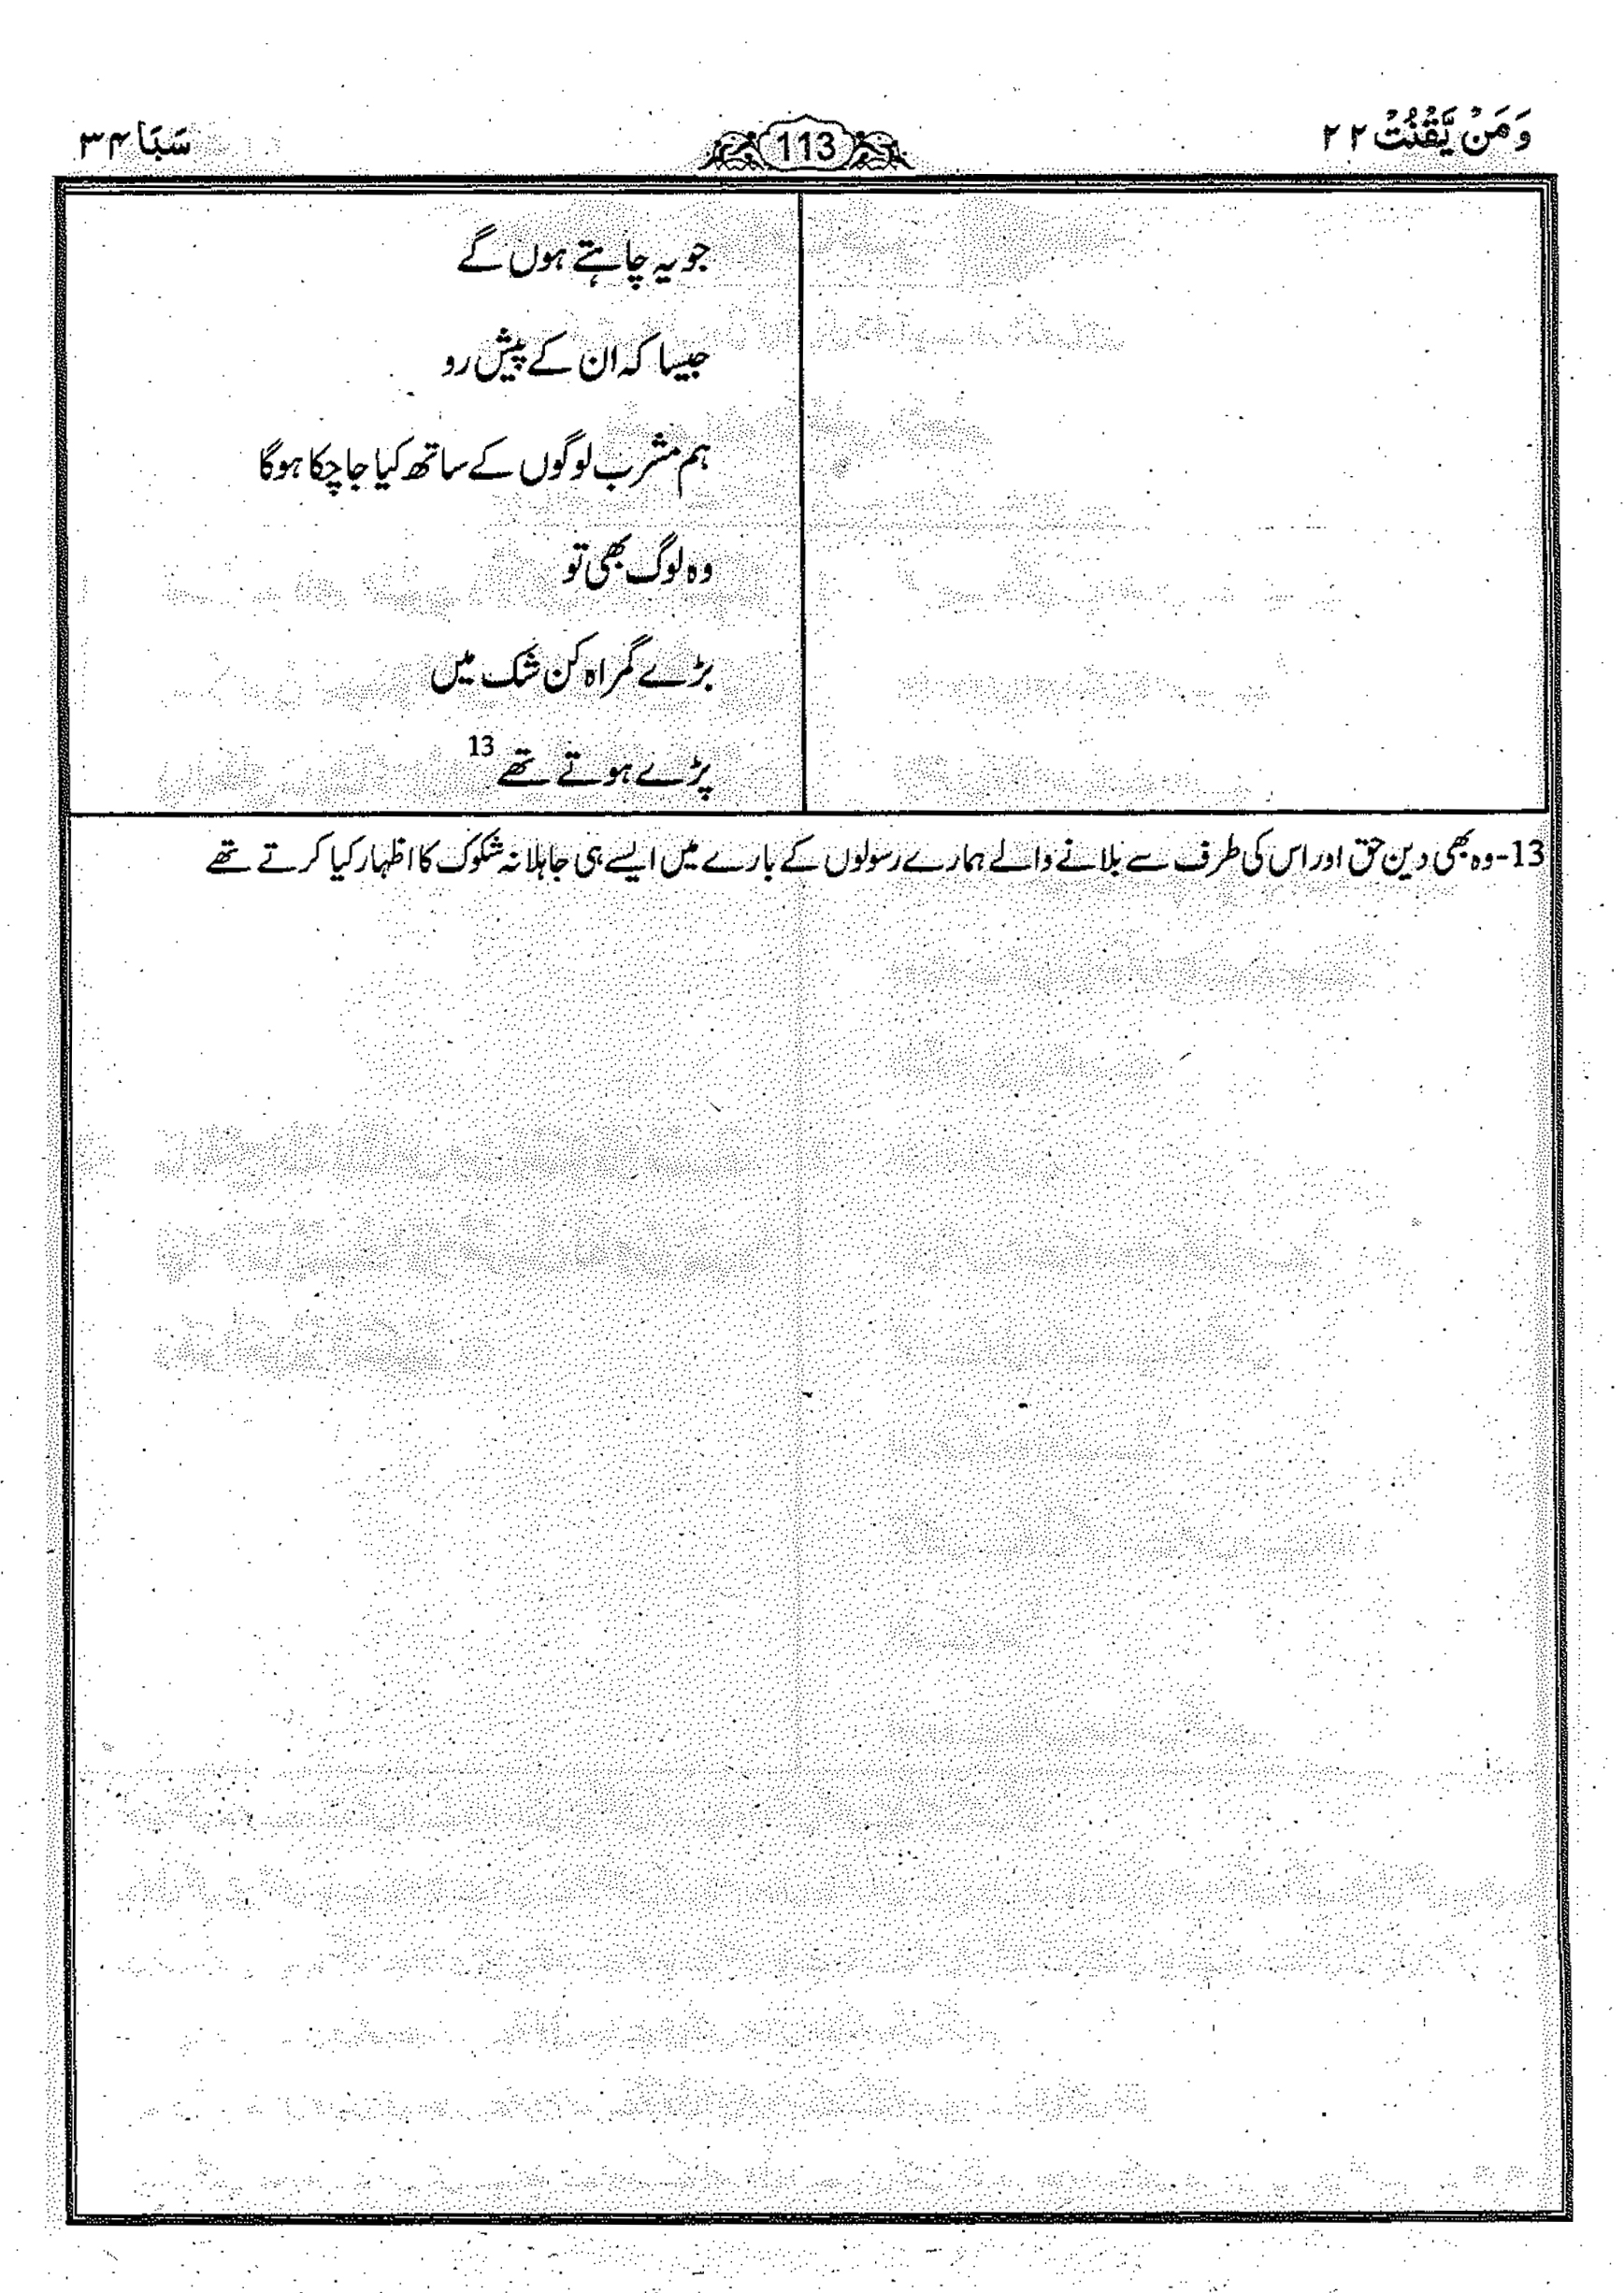 وَمَنْ يَّقْنُتْ ۲۲
113
سَبَا ۳۴
جو یہ چاہتے ہوں گے
جیسا کہ ان کے پیش رو
ہم مشرب لوگوں کے ساتھ کیا جاچکا ہوگا
وہ لوگ بھی تو
بڑے گمراہ کن شک میں
پڑے ہوتے تھے 13
13-وہ بھی دین حق اور اس کی طرف سے بلانے والے ہمارے رسولوں کے بارے میں ایسے ہی جاہلانہ شکوک کا اظہار کیا کرتے تھے